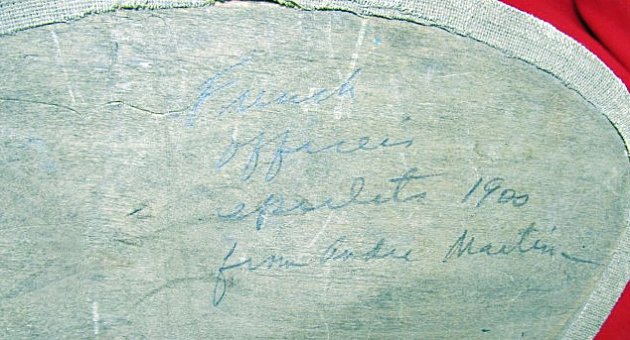 French
officers
epaulets 1900
from Andre Martin